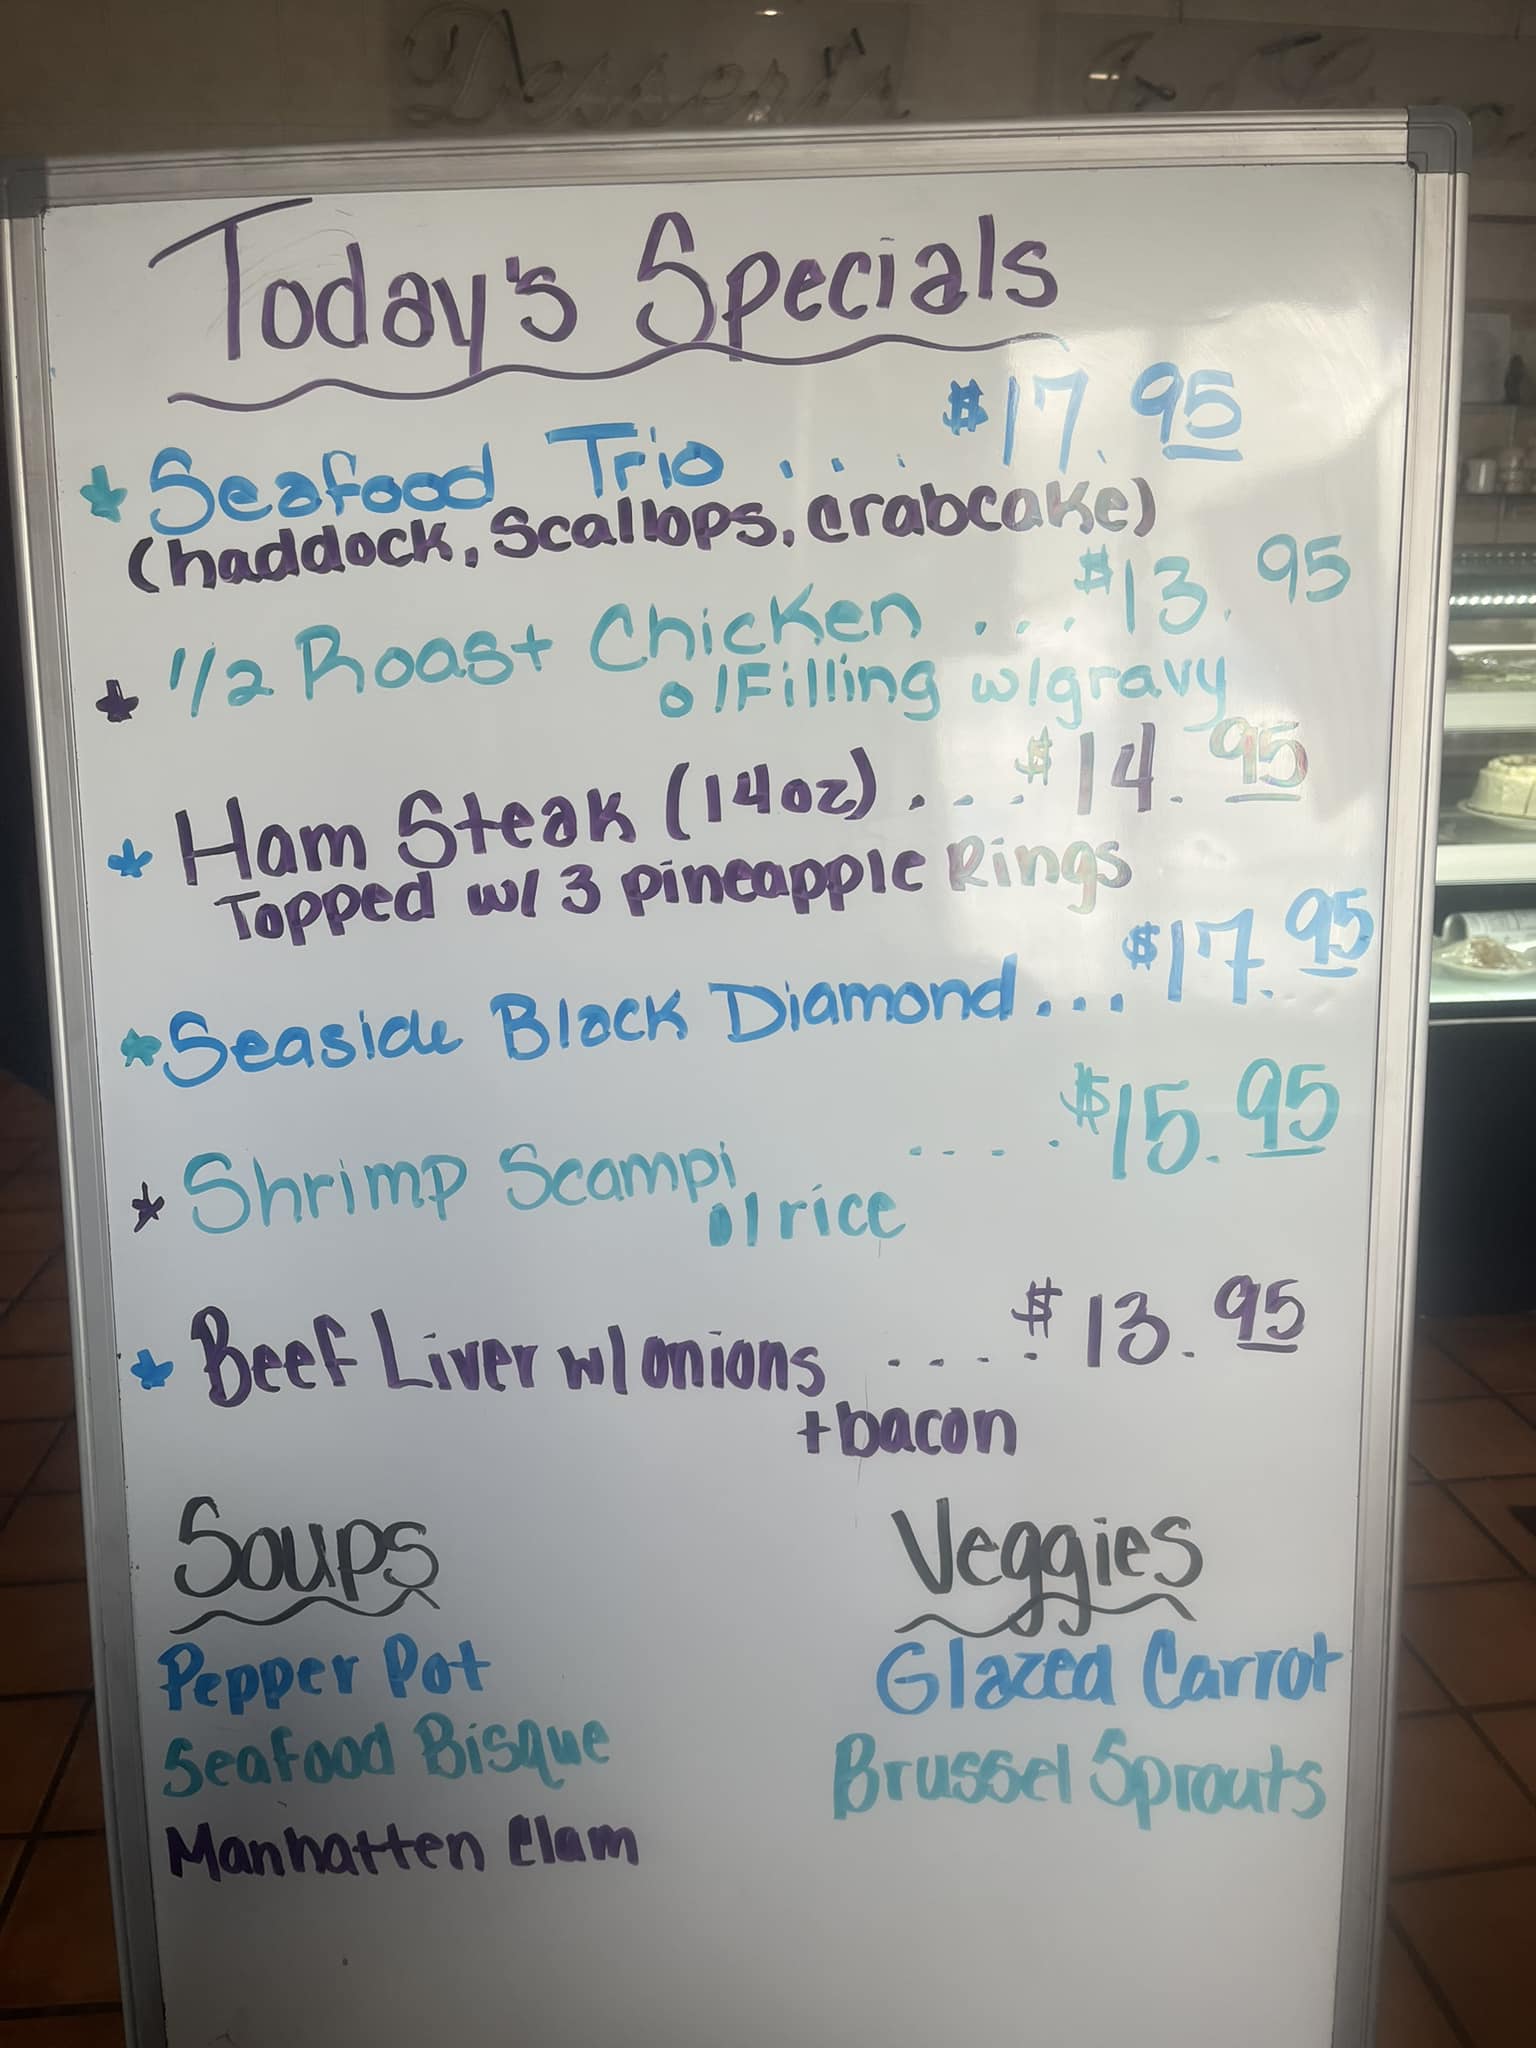 Desserts
Today's Specials
Seafood Trio ... $17.95
(haddock, Scallops, Crabcake)
1/2 Roast Chicken ... $13.95
o/Filling w/gravy
Ham Steak (14oz) ... $14.95
Topped w/ 3 pineapple Rings
Seaside Black Diamond ... $17.95
Shrimp Scampi .... $15.95
o/rice
Beef Liver w/onions .... $13.95
+bacon
Soups
Pepper Pot
Seafood Bisque
Manhatten Clam
Veggies
Glazed Carrot
Brussel Sprouts